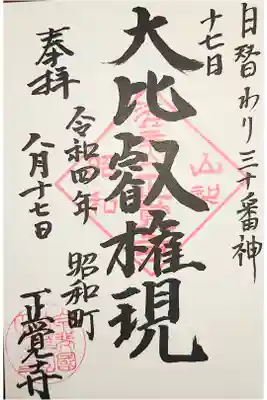 日替わり三十番神
十七日
大比叡権現
奉拝
令和四年
八月十七日
昭和町
正覚寺